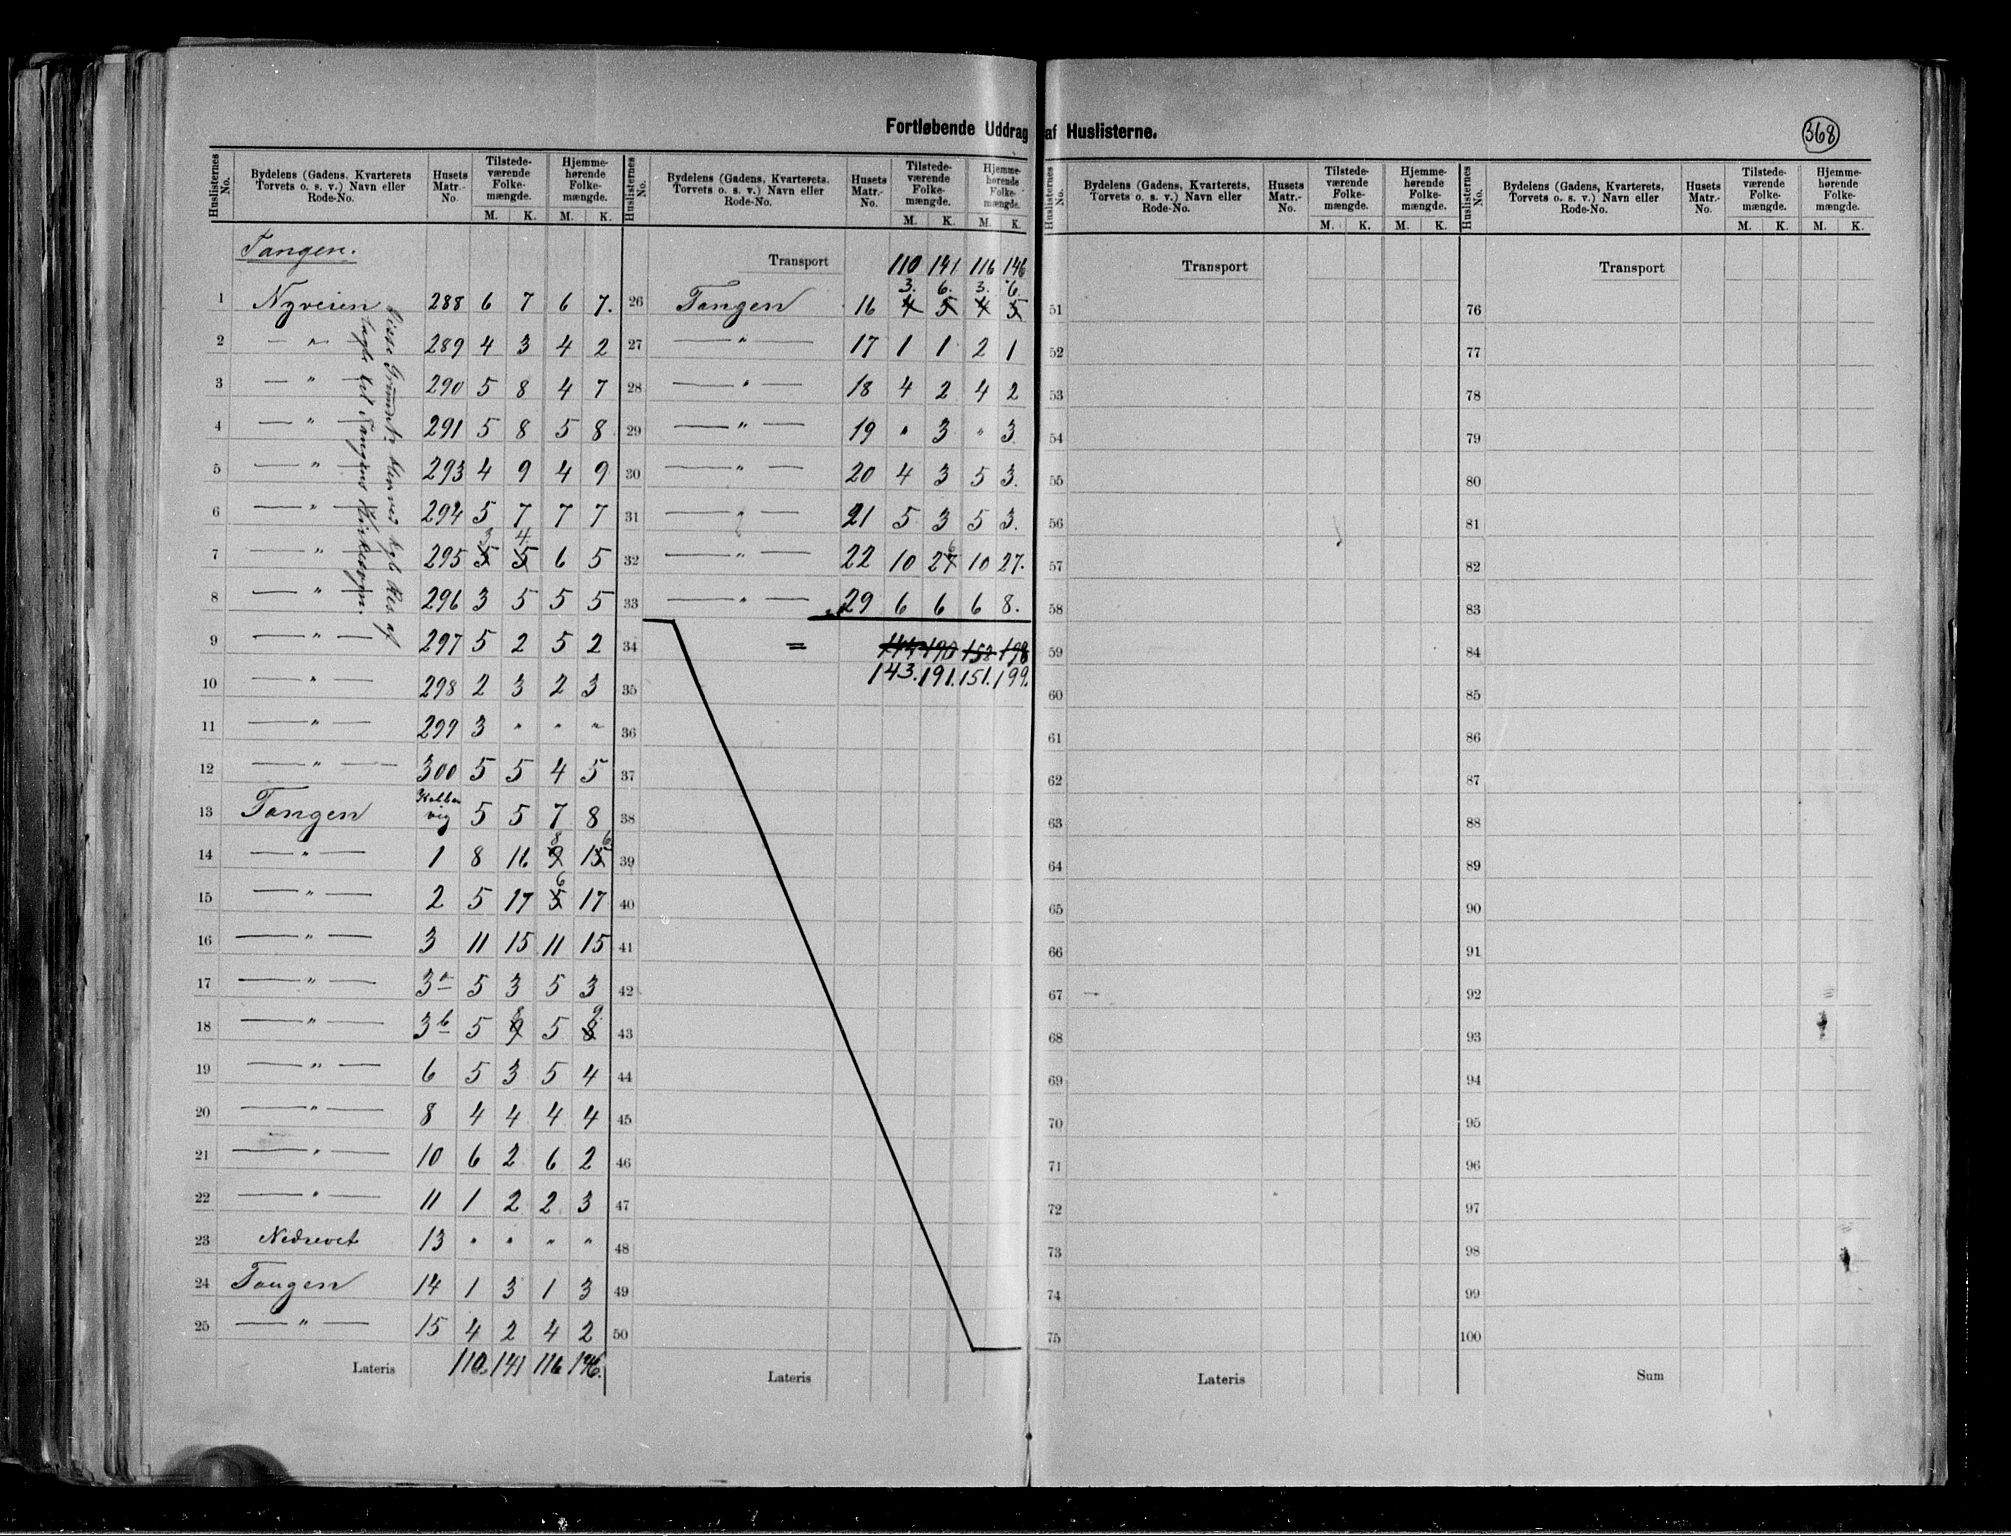 Fortløbende Uddrag af Huslisterne.
368
Huslisternes No. Bydelens (Gadens, Kvarterets Torvets o. s. v.) Navn eller Rode-No. Husets Matr.-No. Tilstede-værende Folke-mængde. M. K. Hjemme-hørende Folke-mængde. M. K.
Tangen.
1 Nyveien 288 6 7 6 7.
2 — " — 289 4 3 4 2
3 — " — 290 5 8 4 7
4 — " — 291 5 8 5 8
5 — " — 293 4 9 4 9
6 — " — 294 5 7 7 7
3 4
7 — " — 295 5 5 6 5
8 — " — 296 3 5 5 5
9 — " — 297 5 2 5 2
10 — " — 298 2 3 2 3
11 — " — 299 3 " " "
12 — " — 300 5 5 4 5
13 Tangen 5 5 7 8
8 6
14 — " — 1 8 16 9 15
6
15 — " — 2 5 17 5 17
16 — " — 3 11 15 11 15
17 — " — 3a 5 3 5 3
8 9
18 — " — 3b 5 9 5 8
19 — " — 6 5 3 5 4
20 — " — 8 4 4 4 4
21 — " — 10 6 2 6 2
22 — " — 11 1 2 2 3
23 Nedrevet 13 " " " "
24 Tangen 14 1 3 1 3
25 — " — 15 4 2 4 2
Lateris 110 141 116 146.
Disse
af
til Tangens Kirkesogn.
Huslisternes No. Bydelens (Gadens, Kvarterets, Torvets o. s. v.) Navn eller Rode-No. Husets Matr.-No. Tilstede-værende Folke-mængde. M. K. Hjemme-hørende Folke-mængde. M. K.
Transport 110 141 116 146
3. 6. 3. 6.
26 Tangen 16 4 5 4 5
27 — " — 17 1 1 2 1
28 — " — 18 4 2 4 2
29 — " — 19 " 3 " 3
30 — " — 20 4 3 5 3.
31 — " — 21 5 3 5 3.
6
32 — " — 22 10 27 10 27.
33 — " — 29 6 6 6 8.
34 = 144 190 152 198
35 143. 191. 151. 199.
36
37
38
39
40
41
42
43
44
45
46
47
48
49
50
Lateris
Huslisternes No. Bydelens (Gadens, Kvarterets, Torvets o. s. v.) Navn eller Rode-No. Husets Matr.-No. Tilstede-værende Folke-mængde. M. K. Hjemme-hørende Folke-mængde. M. K.
Transport
51
52
53
54
55
56
57
58
59
60
61
62
63
64
65
66
67
68
69
70
71
72
73
74
75
Lateris
Huslisternes No. Bydelens (Gadens, Kvarterets, Torvets o. s. v.) Navn eller Rode-No. Husets Matr.-No. Tilstede-værende Folke-mængde. M. K. Hjemme-hørende Folke-mængde. M. K.
Transport
76
77
78
79
80
81
82
83
84
85
86
87
88
89
90
91
92
93
94
95
96
97
98
99
100
Sum